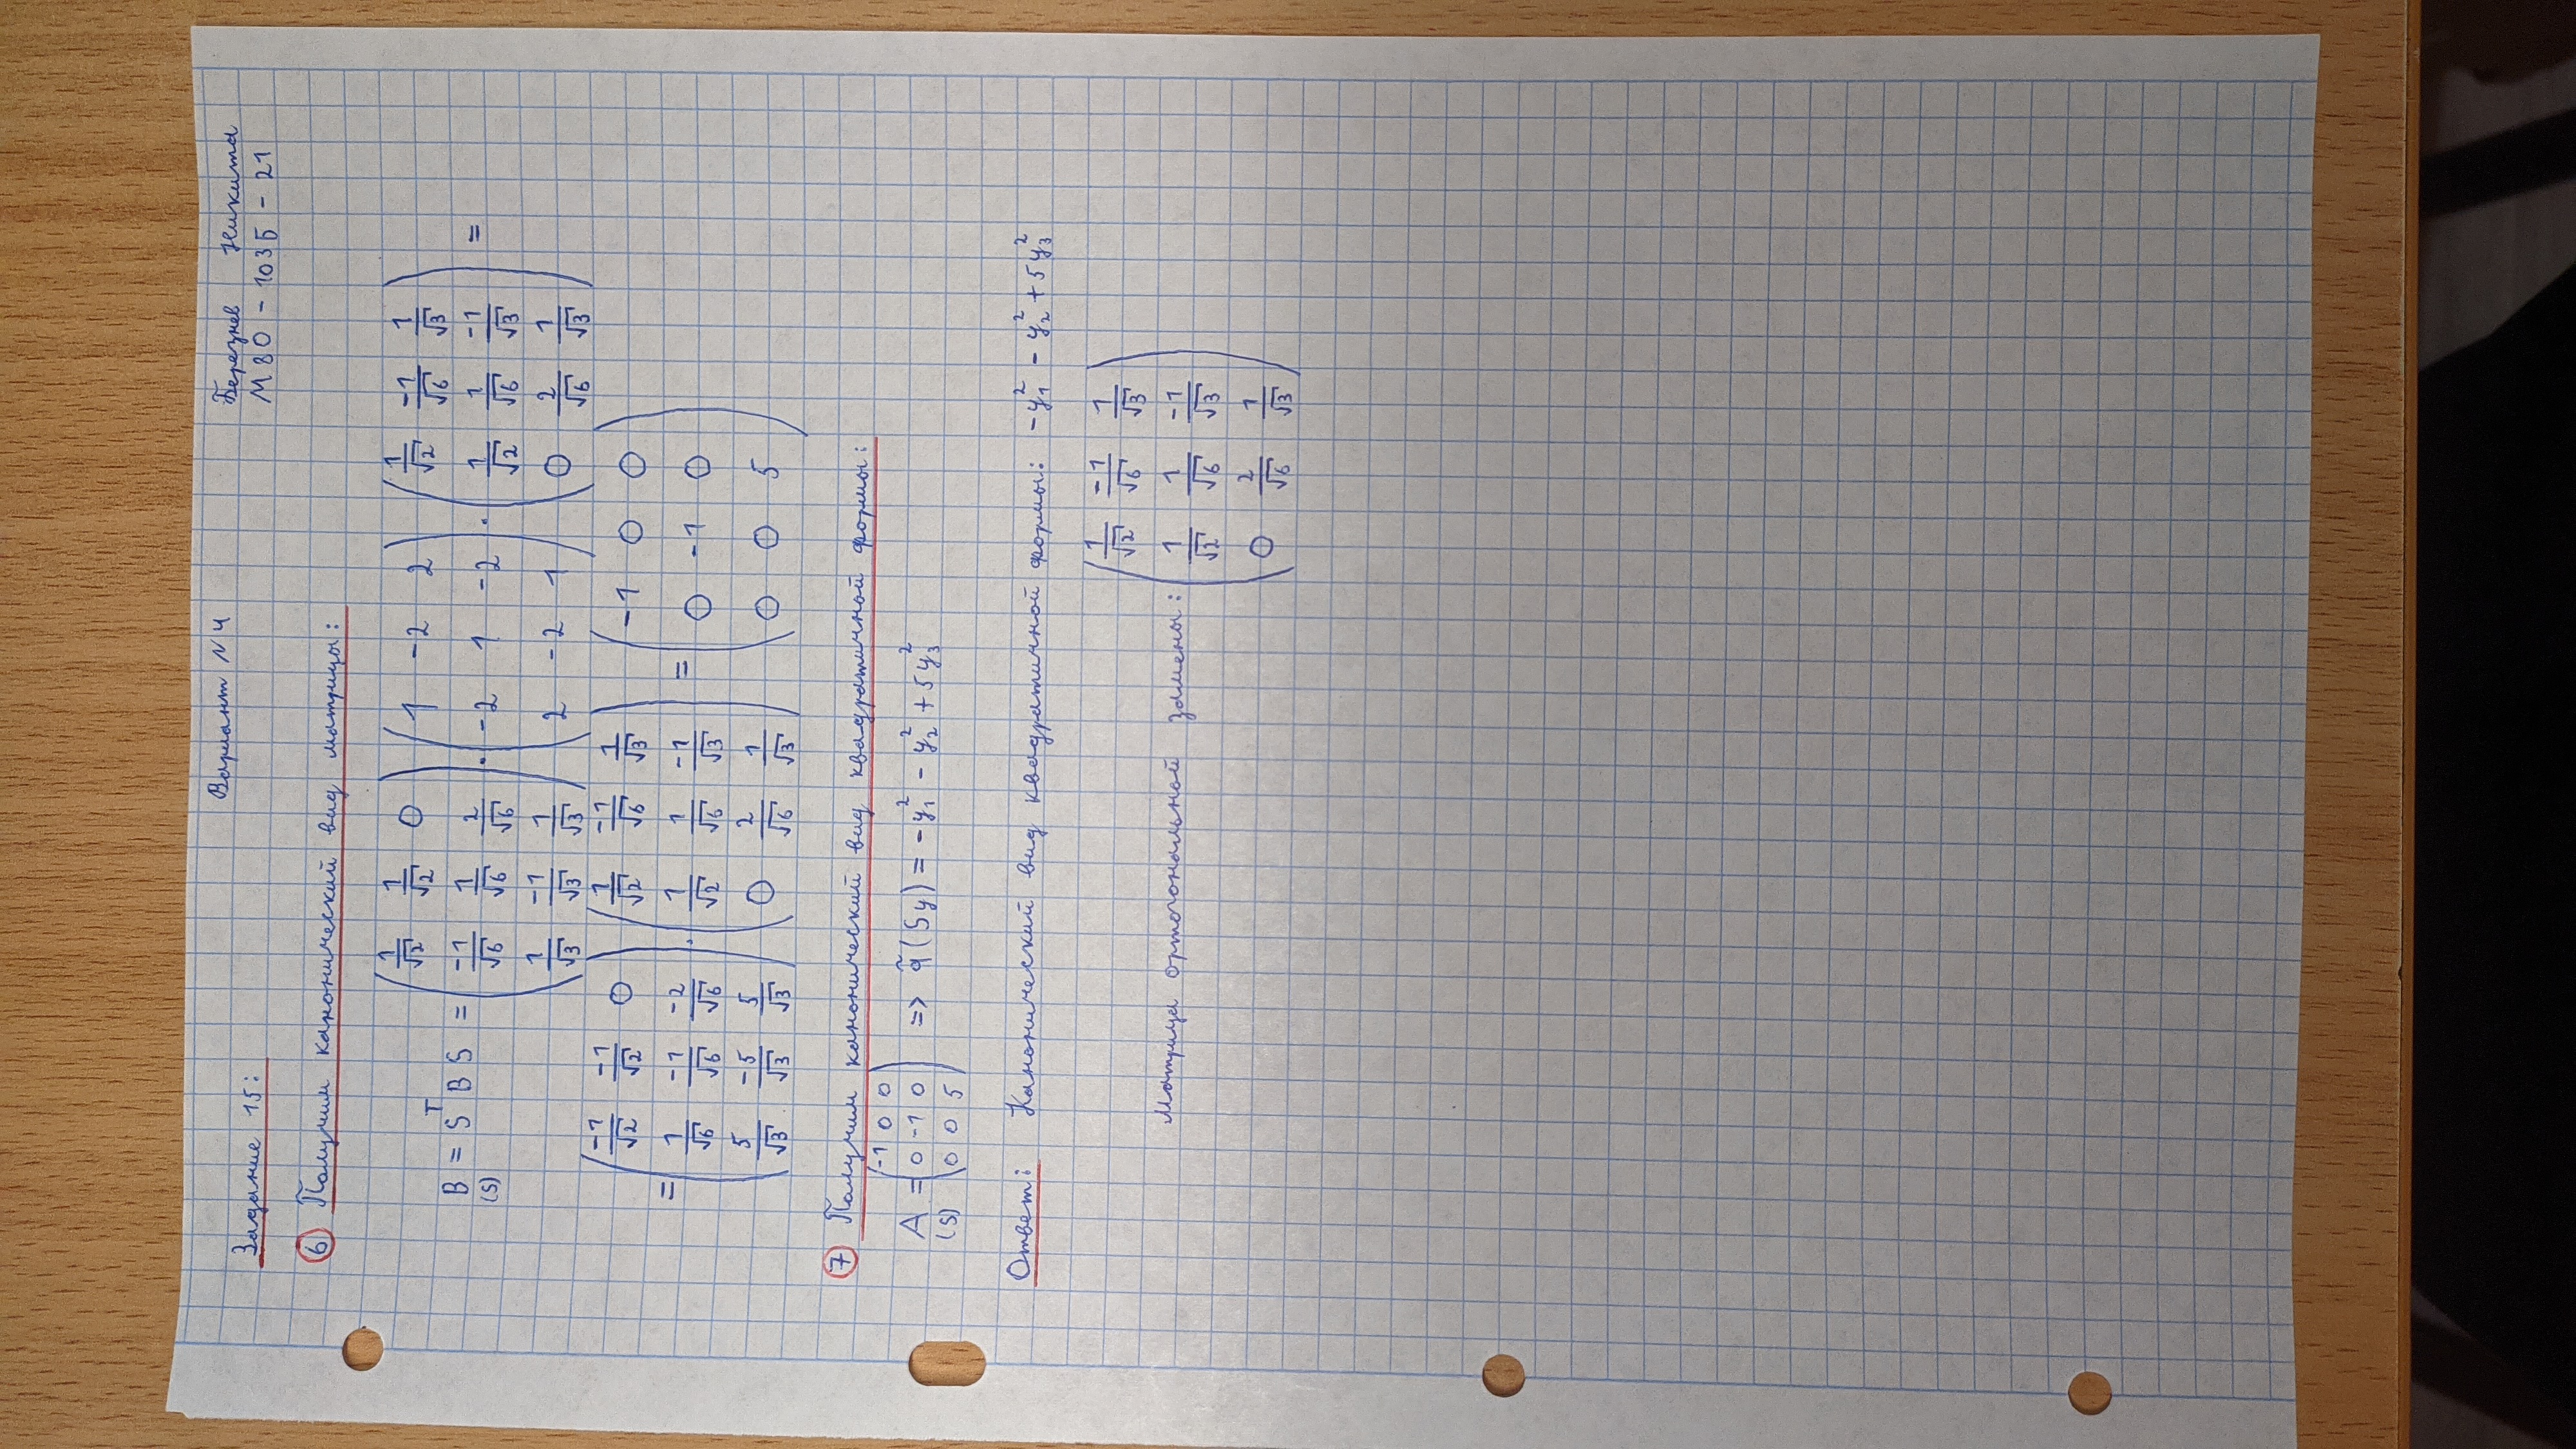 Вариант №4
Березнев Никита
Задание 15:
М8О - 103Б - 21
⑥ Получим канонический вид матрицы:
B_(S) = S^T B S = (1/√2 1/√2 0; -1/√6 1/√6 2/√6; 1/√3 -1/√3 1/√3) · (1 -2 2; -2 1 -2; 2 -2 1) · (1/√2 -1/√6 1/√3; 1/√2 1/√6 -1/√3; 0 2/√6 1/√3) =
= (-1/√2 -1/√2 0; 1/√6 -1/√6 -2/√6; 5/√3 -5/√3 5/√3) · (1/√2 -1/√6 1/√3; 1/√2 1/√6 -1/√3; 0 2/√6 1/√3) = (-1 0 0; 0 -1 0; 0 0 5)
⑦ Получим канонический вид квадратичной формы:
A_(S) = (-1 0 0; 0 -1 0; 0 0 5) => q̃(Sy) = -y₁² - y₂² + 5y₃²
Ответ: Канонический вид квадратичной формы: -y₁² - y₂² + 5y₃²
Матрица ортогональной замены: (1/√2 -1/√6 1/√3; 1/√2 1/√6 -1/√3; 0 2/√6 1/√3)